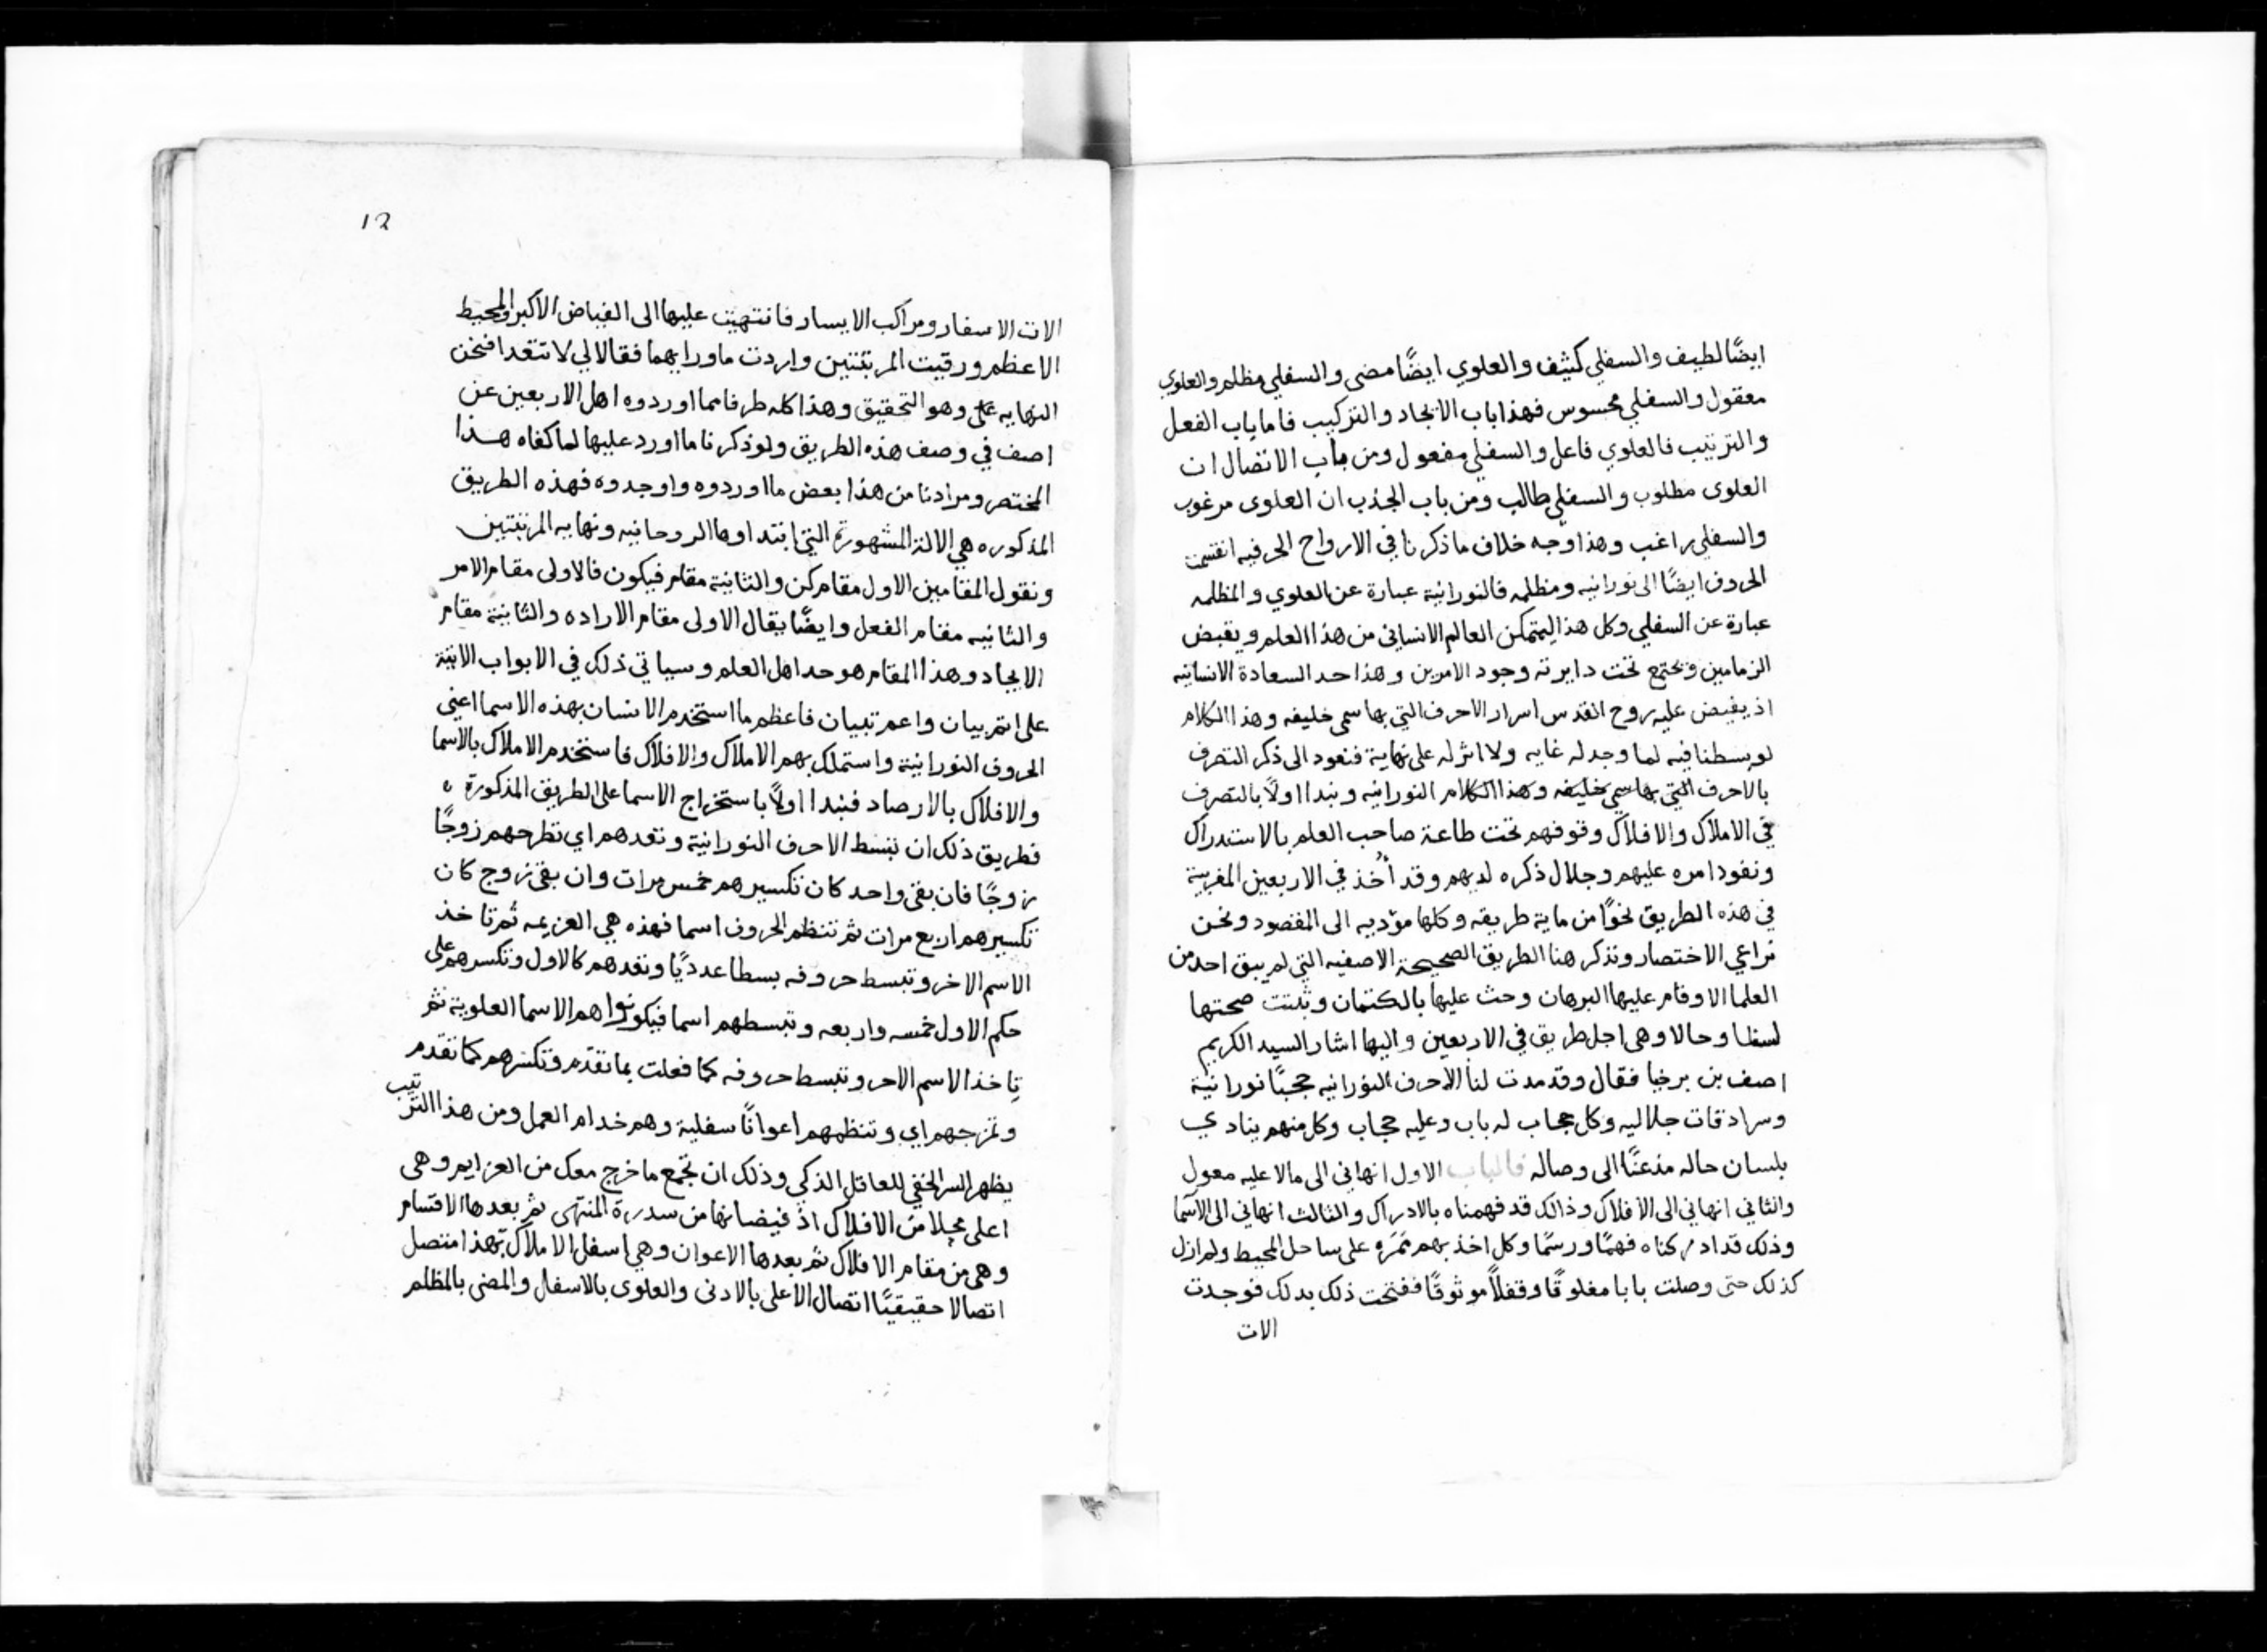 ايضًا لطيف والسفلي كثيف والعلوي ايضًا مضى والسفلي مظلم والعلوي
معقول والسفلي محسوس فهذا باب الايجاد والتركيب فاما باب الفعل
والترتيب فالعلوي فاعل والسفلي مفعول ومن باب الاتصال ان
العلوى مطلوب والسفلي طالب ومن باب الجذب ان العلوى مرغوب
والسفلي راغب وهذا وجه خلاف ما ذكرنا في الارواح الحرفيه انقسمت
الحروف ايضًا الى نورانيه ومظلمه فالنورانية عبارة عن العلوي والمظلمه
عبارة عن السفلي وكل هذا ليتمكن العالم الانسانى من هذا العلم ويقبض
الزمامين ويجتمع تحت دايرته وجود الامرين وهذا حد السعادة الانسانيه
اذ يفيض عليه روح القدس اسرار الاحرف التي بها سمى خليفه وهذا الكلام
لو بسطنا فيه لما وجد له غايه ولا اثر له على نهاية فنعود الى ذكر التصرف
بالاحرف التي بها سمي خليفه وهذا الكلام النورانيه ونبدا اولًا بالتصرف
في الاملاك والافلاك وقوفهم تحت طاعة صاحب العلم بالاستدراك
ونفود امره عليهم وجلال ذكره لديهم وقد أُخذ في الاربعين المغربية
في هذه الطريق نحوًا من ماية طريقه وكلها مؤديه الى المقصود ونحن
نراعي الاختصار ونذكر هنا الطريق الصحيحة الاصفيه التي لم يبق احد من
العلما الا وقام عليها البرهان وحث عليها بالكتمان وثبتت صحتها
لسفلا وحالا وهى اجل طريق في الاربعين واليها اشار السيد الكريم
اصف بن برخيا فقال وقد مدت لنا الاحرف النورانيه حجبًا نورانية
وسرادقات جلاليه وكل حجاب له باب وعليه حجاب وكل منهم ينادي
بلسان حاله مذعنًا الى وصاله فالباب الاول انهاني الى مالا عليه معول
والثاني انهاني الى الافلاك وذالك قد فهمناه بالادراك والثالث انهاني الى الاسما
وذلك قد ادركناه فهمًا ورسمًا وكل اخذ بهم نمره على ساحل المحيط ولم ازل
كذلك حتى وصلت بابا مغلوقًا وقفلًا موثوقًا ففتحت ذلك بدلك فوجدت
الات
12
الات الاسفار ومراكب الايسار فانتهيت عليها الى الفياض الاكبر والمحيط
الاعظم ورقيت المرتبتين واردت ما ورايهما فقالا لي لا تتعدا فنحن
النهايه على وهو التحقيق وهذا كله طرفا مما اوردوه اهل الاربعين عن
اصف في وصف هذه الطريق ولو ذكرنا ما اورد عليها لما كفاه هذا
المختصر ومرادنا من هذا بعض ما اوردوه واوجدوه فهذه الطريق
المذكوره هي الالة المشهورة التي ابتداوها الروحانيه ونهايه المرتبتين
ونقول المقامين الاول مقام كن والثانية مقام فيكون فالاولى مقام الامر
والثانيه مقام الفعل وايضًا يقال الاولى مقام الاراده والثانية مقام
الايجاد وهذا المقام هو حد اهل العلم وسياتي ذلك في الابواب الاتية
على اتم بيان واعم تبيان فاعظم ما استخدم الانسان بهذه الاسما اعنى
الحروف النورانية واستملك بهم الاملاك والافلاك فاستخدم الاملاك بالاسما
والافلاك بالارصاد فنبدا اولًا باستخراج الاسما على الطريق المذكورة
فطريق ذلك ان تبسط الاحرف النورانية وتعدهم اي تطرحهم زوجًا
زوجًا فان بقى واحد كان تكسيرهم خمس مرات وان بقى زوج كان
تكسيرهم اربع مرات ثم تنظم الحروف اسما فهذه هي العزيمه ثم تاخذ
الاسم الاخر وتبسط حروفه بسطا عدديًا وتعدهم كالاول وتكسرهم على
حكم الاول خمسه واربعه وتبسطهم اسما فيكونوا هم الاسما العلوية ثم
تاخذ الاسم الاحر وتبسط حروفه كما فعلت بما تقدم وتكسرهم كما تقدم
وتمزجهم اي وتنظمهم اعوانًا سفلية وهم خدام العمل ومن هذا الترتيب
يظهر السر الخفي للعاقل الذكي وذلك ان تجمع ما خرج معك من العزايم وهى
اعلى محلا من الافلاك اذ فيضانها من سدرة المنتهى ثم بعدها الاقسام
وهى من مقام الافلاك ثم بعدها الاعوان وهي اسفل الاملاك بهذا متصل
اتصالا حقيقيًا اتصال الاعلى بالادنى والعلوى بالاسفل والمضى بالمظلم